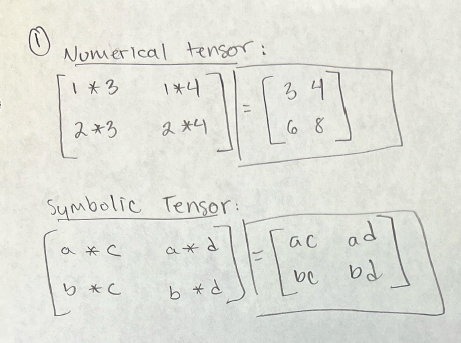 ① Numerical tensor:
[1 * 3 1 * 4] = [3 4]
[2 * 3 2 * 4] [6 8]
Symbolic Tensor:
[a * c a * d] = [ac ad]
[b * c b * d] [bc bd]